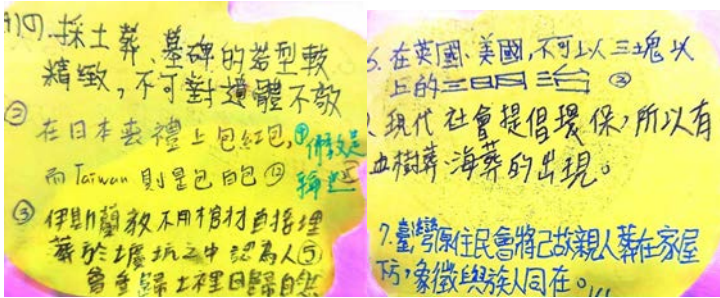 採土葬、墓碑的造型較
精緻,不可對遺體不敬
② 在日本喪禮上包紅包,
而Taiwan 則是包白包 ⑫
③ 伊斯蘭教不用棺材直接埋
葬於土壙坑之中 認為人⑤
會重歸土裡回歸自然
在英國、美國,不可以三塊以
上的三明治 ③
現代社會提倡環保,所以有
樹葬、海葬的出現。
7.臺灣原住民會將已故親人葬在家屋
下方,象徵與族人同在。